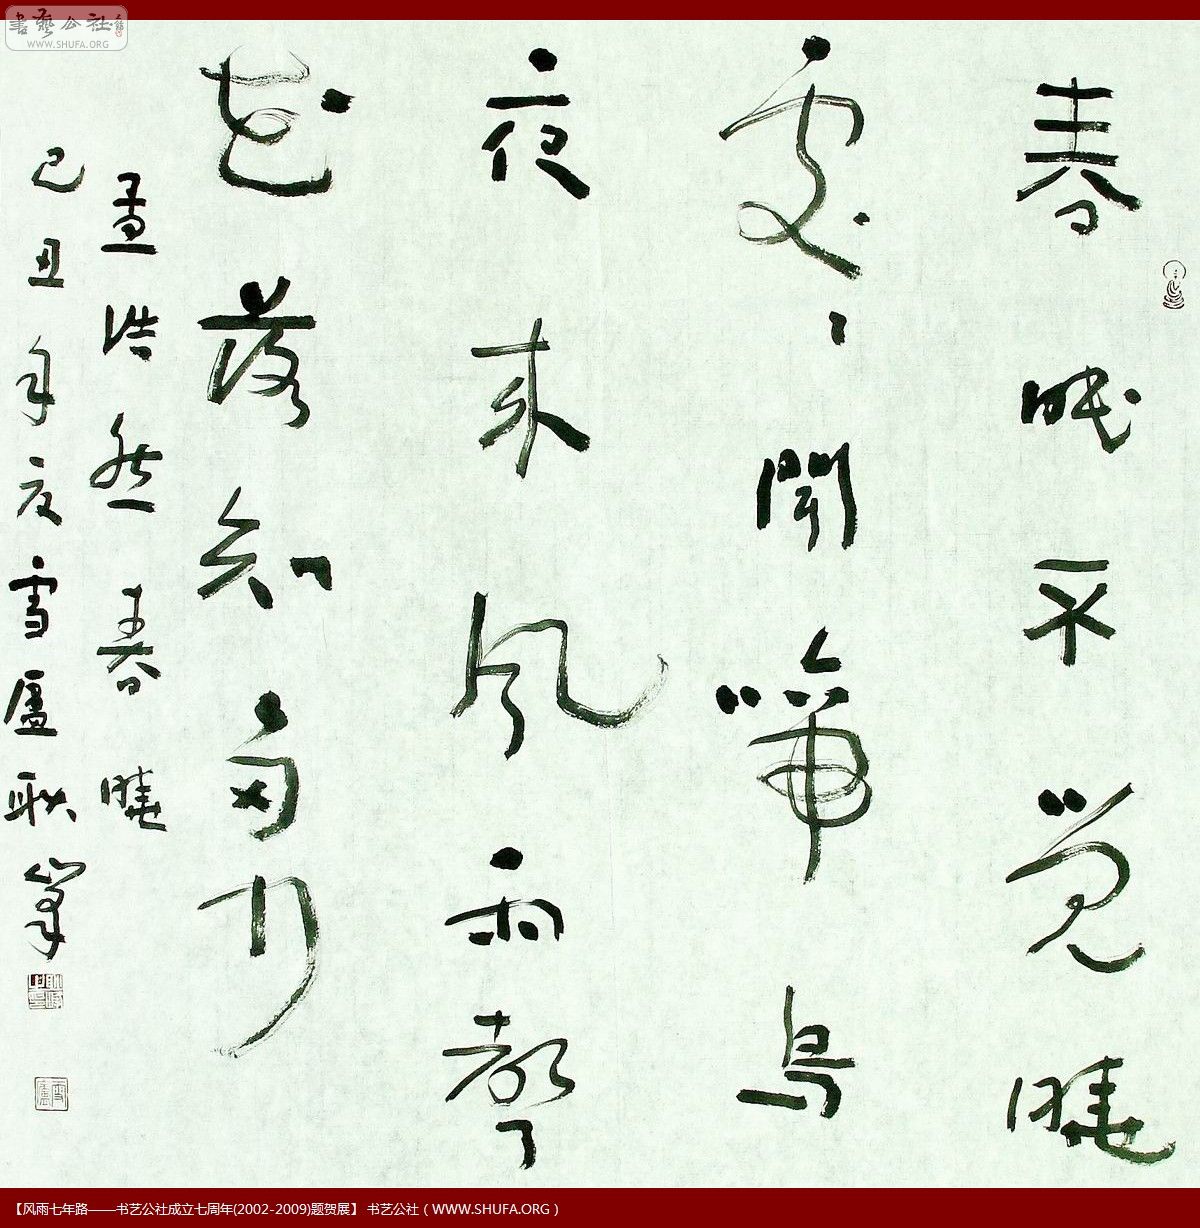 書艺公社
WWW.SHUFA.ORG
春眠不覺曉
處處聞啼鳥
夜来風雨聲
花落知多少
孟浩然春曉
己丑年夏雪廬耿峯
【风雨七年路——书艺公社成立七周年(2002-2009)题贺展】 书艺公社（WWW.SHUFA.ORG）